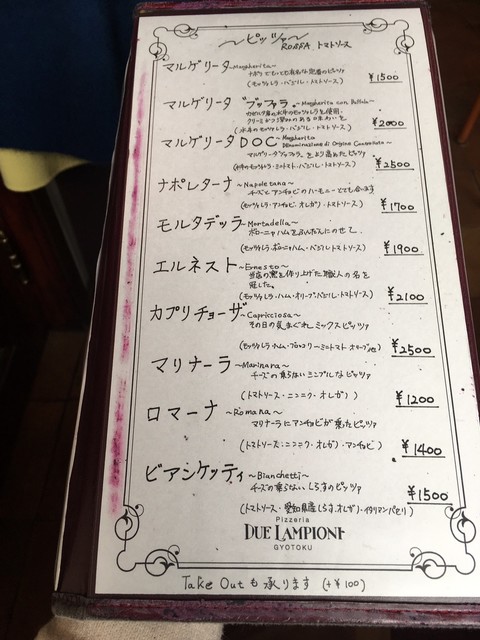 〜ピッツァ〜
ROSSA トマトソース
マルゲリータ 〜Margherita〜
ナポリでもっとも有名な定番のピッツァ
(モッツァレラ・バジリコ・トマトソース)
¥1500
マルゲリータ ブッファラ 〜Margherita con Buffala〜
カゼルタ産の水牛のモッツァレラを使用。
クリーミーかつ深みのある味わいを
(水牛のモッツァレラ・バジリコ・トマトソース)
¥2000
マルゲリータ DOC 〜Margherita
Denominazione di Origine Controllata〜
マルゲリータブッファラをより高めたピッツァ
(水牛のモッツァレラ・ミニトマト・バジリコ・トマトソース)
¥2500
ナポレターナ 〜Napoletana〜
チーズとアンチョビのハーモニーがとても合います
(モッツァレラ・アンチョビ・オレガノ・トマトソース)
¥1700
モルタデッラ 〜Mortadella〜
ボローニャハムをふんだんにのせて。
(モッツァレラ・ボローニャハム・バジリコ・トマトソース)
¥1900
エルネスト 〜Ernesto〜
当店の窯を作り上げた職人の名を
冠した。
(モッツァレラ・ハム・オリーブ・バジリコ・トマトソース)
¥2100
カプリチョーザ 〜Capricciosa〜
その日の気まぐれミックスピッツァ
(モッツァレラ・ハム・ブロッコリー・ミニトマト オリーブ他)
¥2500
マリナーラ 〜Marinara〜
チーズの乗らないシンプルなピッツァ
(トマトソース・ニンニク・オレガノ)
¥1200
ロマーナ 〜Romana〜
マリナーラにアンチョビが乗ったピッツァ
(トマトソース・ニンニク・オレガノ・アンチョビ)
¥1400
ビアンケッティ 〜Bianchetti〜
チーズの乗らないしらすのピッツァ
(トマトソース・愛知県産しらす・オレガノ・イタリアンパセリ)
¥1500
Pizzeria
DUE LAMPIONI
GYOTOKU
Take Outも承ります (+¥100)